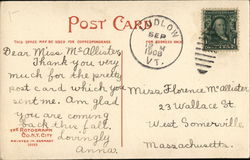 POST CARD
THIS SPACE MAY BE USED FOR CORRESPONDENCE
FOR ADDRESS ONLY
LUDLOW
SEP
1908
VT.
Dear Miss McAllister,
Thank you very
much for the pretty
post card which you
sent me. Am glad
you are coming
back this fall.
Lovingly
Anna.
Miss. Florence McAllister
23 Wallace St.
West Somerville
Massachusetts.
THE ROTOGRAPH
CO. N.Y. CITY
PRINTED IN GERMANY